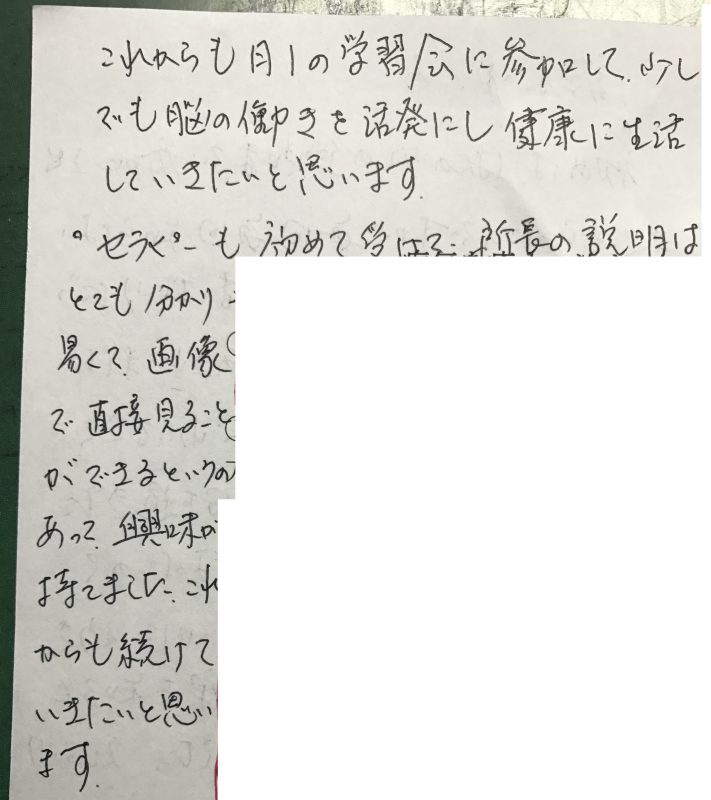 これからも月1の学習会に参加して、少し
でも脳の働きを活発にし健康に生活
していきたいと思います。
・セラピーも初めて受けて、所長の説明は
とても分かり
易くて、画像
で直接見ること
ができるというの
あって、興味が
持てました。これ
からも続けて
いきたいと思い
ます。